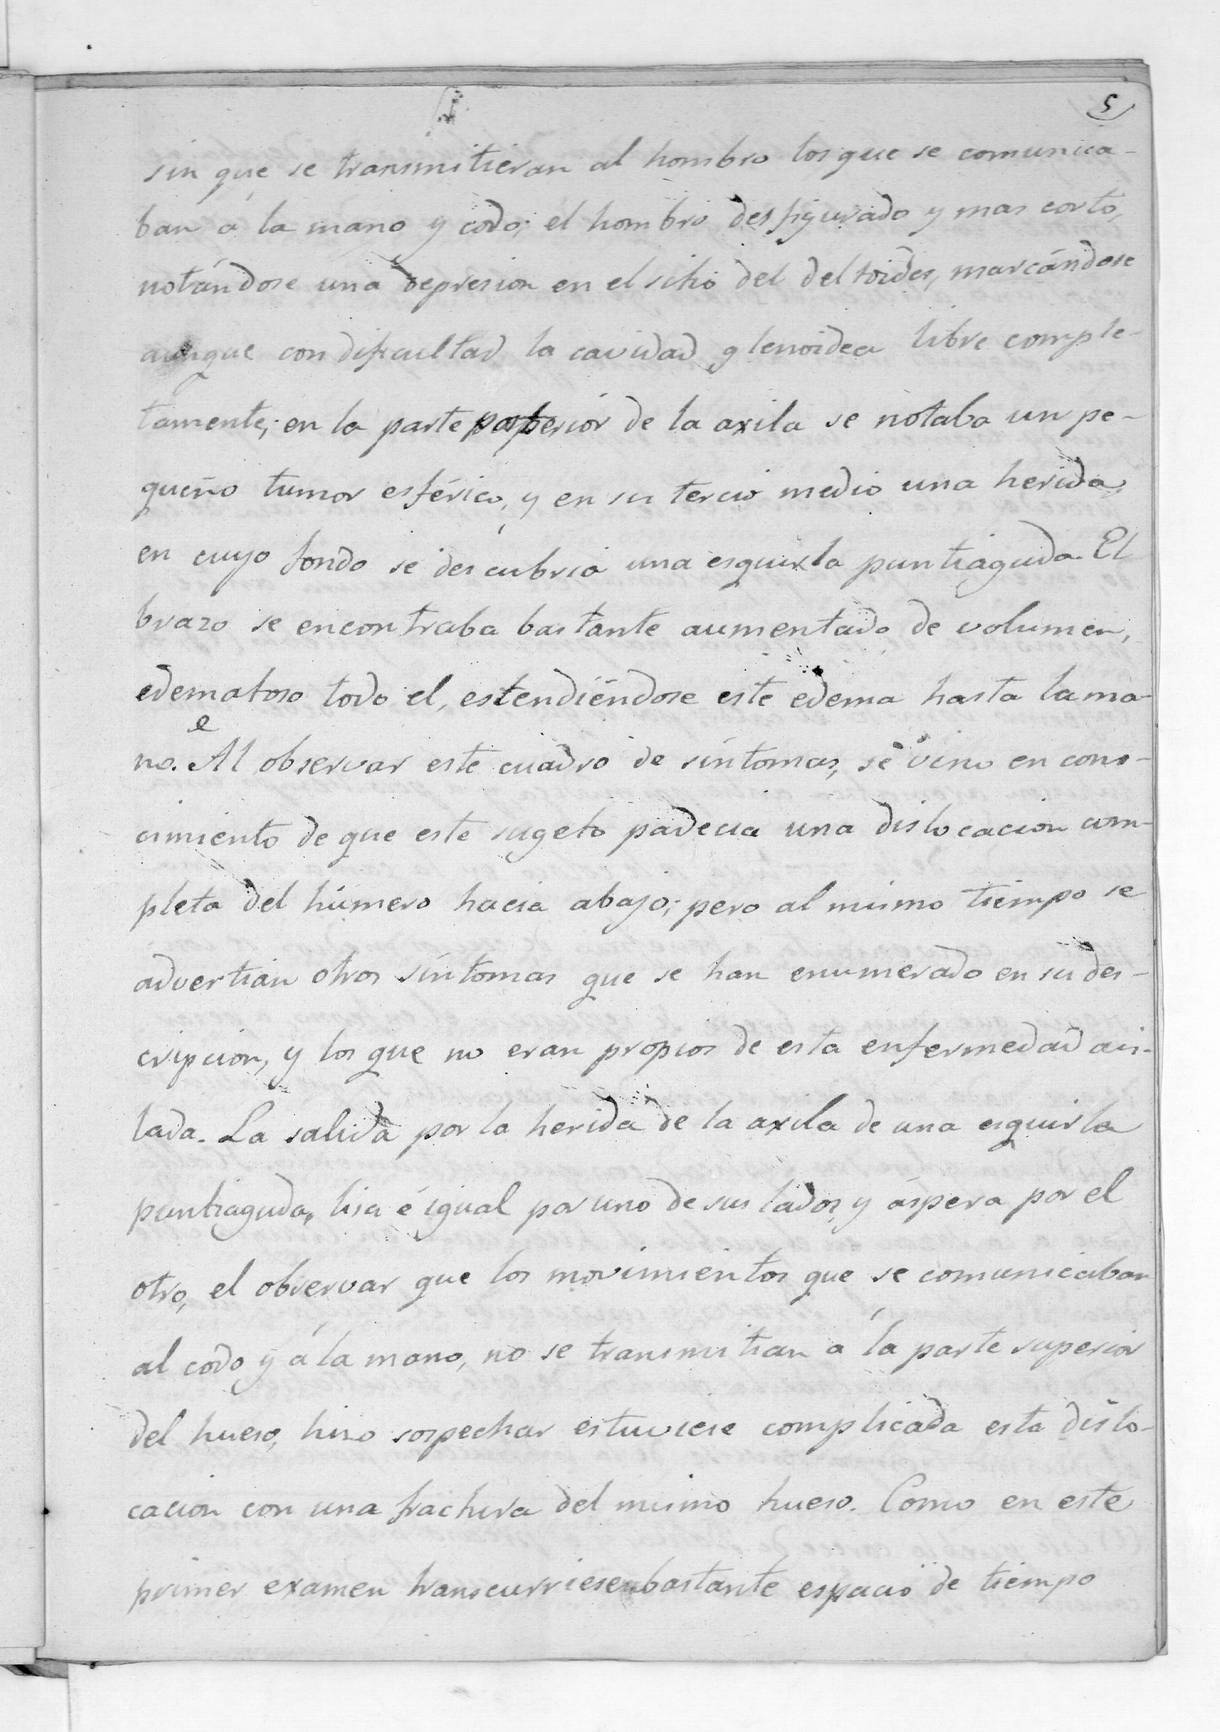 5
sin que se transmitieran al hombro los que se comunica-
ban á la mano y codo; el hombro desfigurado y mas corto,
notándose una depresion en el sitio del deltoides, marcándose
aunque con dificultad la cavidad glenoidea libre comple-
tamente; en la parte posterior de la axila se notaba un pe-
queño tumor esférico, y en su tercio medio una herida,
en cuyo fondo se descubria una esquirla puntiaguda. El
brazo se encontraba bastante aumentado de volumen,
edematoso todo el, estendiéndose este edema hasta la ma-
no. Al observar este cuadro de síntomas, se vino en cono-
cimiento de que este sugeto padecia una dislocacion com-
pleta del húmero hacia abajo; pero al mismo tiempo se
advertian otros síntomas que se han enumerado en su des-
cripcion, y los que no eran propios de esta enfermedad ais-
lada. La salida por la herida de la axila de una esquirla
puntiaguda, lisa é igual por uno de sus lados, y áspera por el
otro, el observar que los movimientos que se comunicaban
al codo y á la mano, no se transmitian á la parte superior
del hueso, hizo sospechar estuviese complicada esta dislo-
cacion con una frachura del mismo hueso. Como en este
primer examen transcurriesen bastante espacio de tiempo